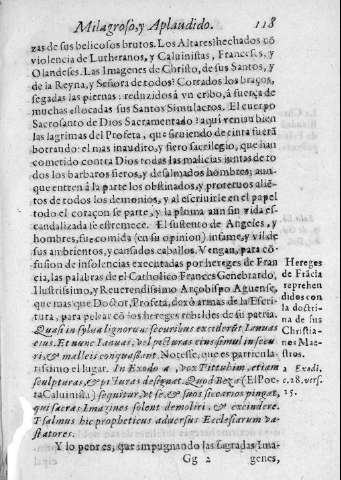 Milagroso, y Aplaudido. 118
zas de sus belicosos brutos. Los Altares? hechados cõ
violencia de Lutheranos, y Caluinistas, Franceses, y
Olandeses. Las Imagenes de Christo, de sus Santos, y
de la Reyna, y Señora de todos? Cortados los braços,
segadas las piernas; reduzidos à vn cribo, à fuerça de
muchas estocadas sus Santos Simulacros. El cuerpo
Sacrosanto de Dios Sacramentado? aqui venian bien
las lagrimas del Profeta, que siruiendo de tinta fuerã
borrando el mas inaudito, y fiero sacrilegio, que han
cometido contra Dios todas las malicias juntas de to
dos los barbaros fieros, y desalmados hombres; aun-
que entren à la parte los obstinados, y proteruos aliẽ-
tos de todos los demonios, y al escriuirle en el papel
todo el coraçon se parte, y la pluma aun sin vida es-
candalizada se estremece. El sustento de Angeles, y
hombres, fue comida (en su opinion) infame, y vil de
sus ambrientos, y cansados caballos. Vengan, para cõ-
fusion de insolencias executadas por hereges de Fran
cia, las palabras de el Catholico Frances Genebrardo,
Ilustrissimo, y Reuerendissimo Arçobispo Aguense,
que mas que Doctor, Profeta, dexò armas de la Escri-
tura, para pelear cõ los hereges rebeldes de su patria.
Quasi in sylua lignorum securibus exciderũt Ianuas
eius. Et nunc Ianuas, vel picturas eius simul in secu-
ri, & malleis conquassant. Notesse, que es parti en la-
tissimo el lugar. In Exodo a, vox Pittuhim, etiam
sculpturas, & picturas designat. Quod Beza (El Poe-
ta Caluinista) sequitur. Vt se, & suos sicarios pingat,
qui sacras Imagines solent demoliri, & excindere.
Psalmus hic propheticus aduersus Ecclesiarum va-
statores.
Y lo peor es, que impugnando las sagradas Ima-
Gg 2 genes,
Hereges
de Frãcia
reprehen
didos con
la doctri-
na de sus
Christia-
nos Mae-
stros.
a Exodi,
c. 28. vers.
15.